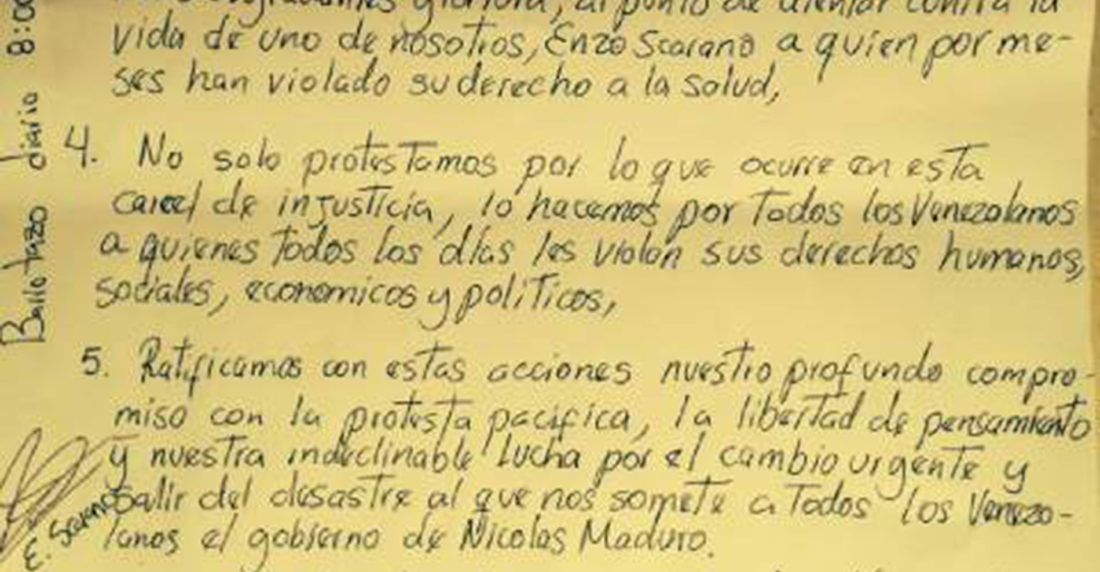 al punto de atentar contra la
vida de uno de nosotros, Enzo Scarano a quien por me-
ses han violado su derecho a la salud,
4. No solo protestamos por lo que ocurre en esta
carcel de injusticia, lo hacemos por Todos los Venezolanos
a quienes Todos los días les violan sus derechos humanos,
sociales, economicos y politicos,
5. Ratificamos con estas acciones nuestro profundo compro-
miso con la protesta pacifica, la libertad de pensamiento
y nuestra indeclinable Lucha por el cambio urgente y
salir del desastre al que nos somete a Todos los Venezo-
lanos el gobierno de Nicolas Maduro.
diario 8:00
E. Scarano